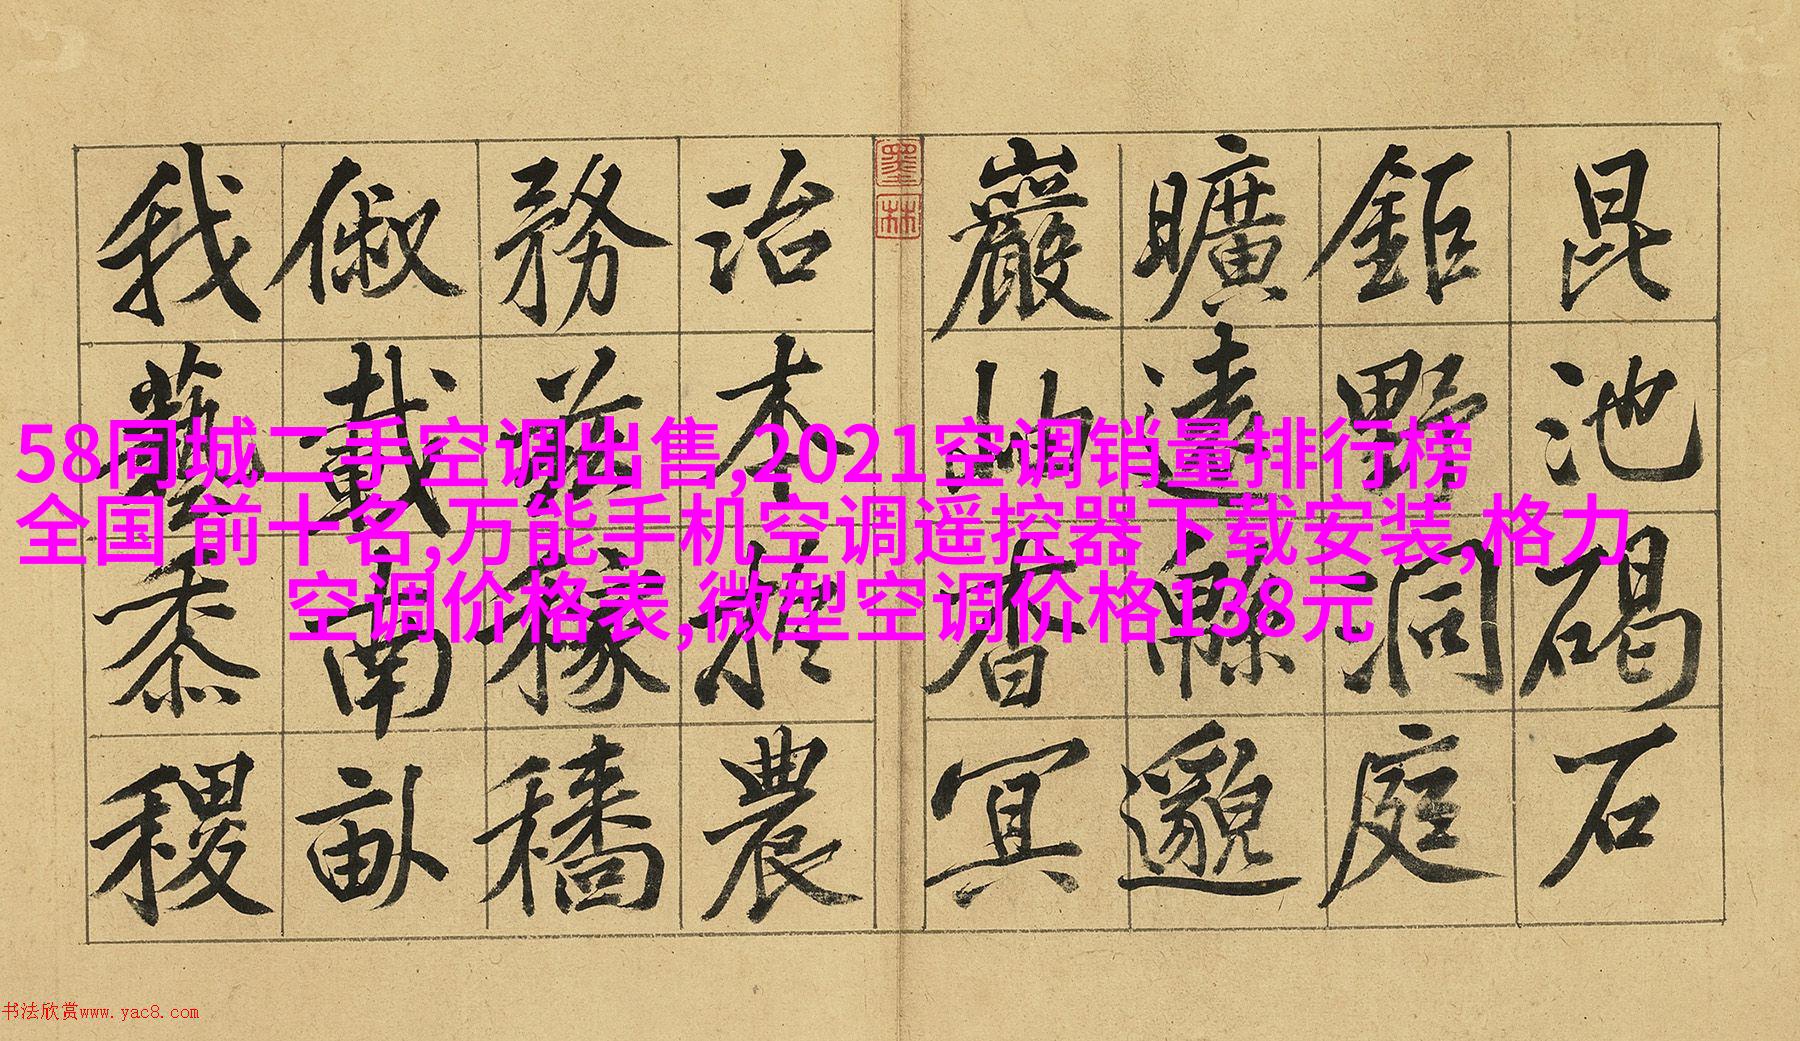 昆池碣石
鉅野洞庭
曠遠緜邈
巖岫杳冥
墨林
治本於農
務茲稼穡
俶載南畝
我藝黍稷
58同城二手空调出售,2021空调销量排行榜
全国 前十名,万能手机空调遥控器下载安装,格力
空调价格表,微型空调价格138元
书法欣赏www.yac8.com